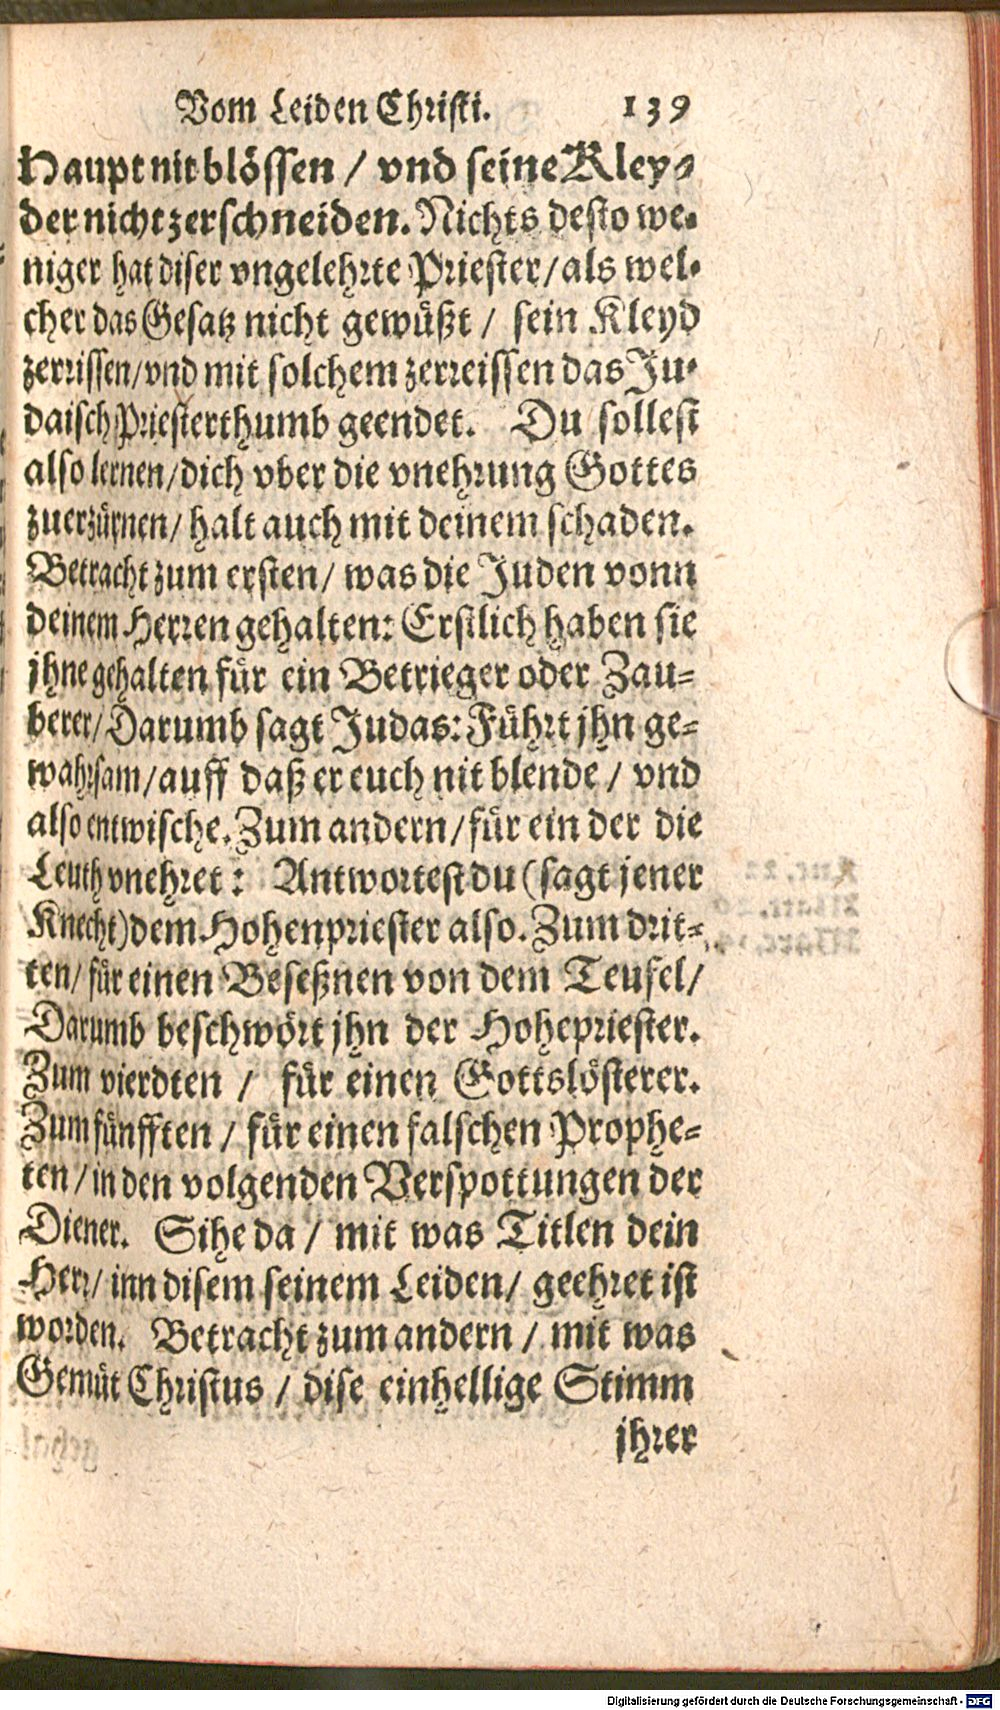 Vom Leiden Christi. 139
Haupt nit blössen / vnd seine Kley-
der nicht zerschneiden. Nichts desto we-
niger hat diser vngelehrte Priester / als wel-
cher das Gesatz nicht gewüßt / sein Kleyd
zerrissen / vnd mit solchem zerreissen das Ju-
daisch Priesterthumb geendet. Du sollest
also lernen / dich vber die vnehrung Gottes
zuerzürnen / halt auch mit deinem schaden.
Betracht zum ersten / was die Juden vonn
deinem Herren gehalten: Erstlich haben sie
jhne gehalten für ein Betrieger oder Zau-
berer / Darumb sagt Judas: Führt jhn ge-
wahrsam / auff daß er euch nit blende / vnd
also entwische. Zum andern / für ein der die
Leuth vnehret: Antwortest du (sagt jener
Knecht) dem Hohenpriester also. Zum drit-
ten / für einen Beseßnen von dem Teufel /
Darumb beschwört jhn der Hohepriester.
Zum vierdten / für einen Gottslösterer.
Zum fünfften / für einen falschen Prophe-
ten / in den volgenden Verspottungen der
Diener. Sihe da / mit was Titlen dein
Herr / inn disem seinem Leiden / geehret ist
worden. Betracht zum andern / mit was
Gemüt Christus / dise einhellige Stimm
jhrer
Digitalisierung gefördert durch die Deutsche Forschungsgemeinschaft - DFG